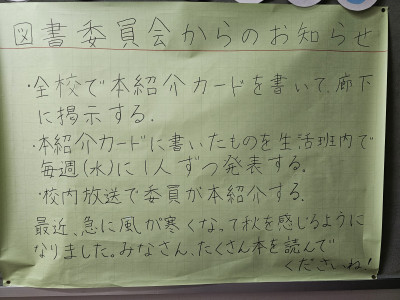 図書委員会からのお知らせ
・全校で本紹介カードを書いて、廊下
に掲示する.
・本紹介カードに書いたものを生活班内で
毎週(水)に1人ずつ発表する.
・校内放送で委員が本紹介する.
最近、急に風が寒くなって秋を感じるように
なりました。みなさん、たくさん本を読んで
くださいね!